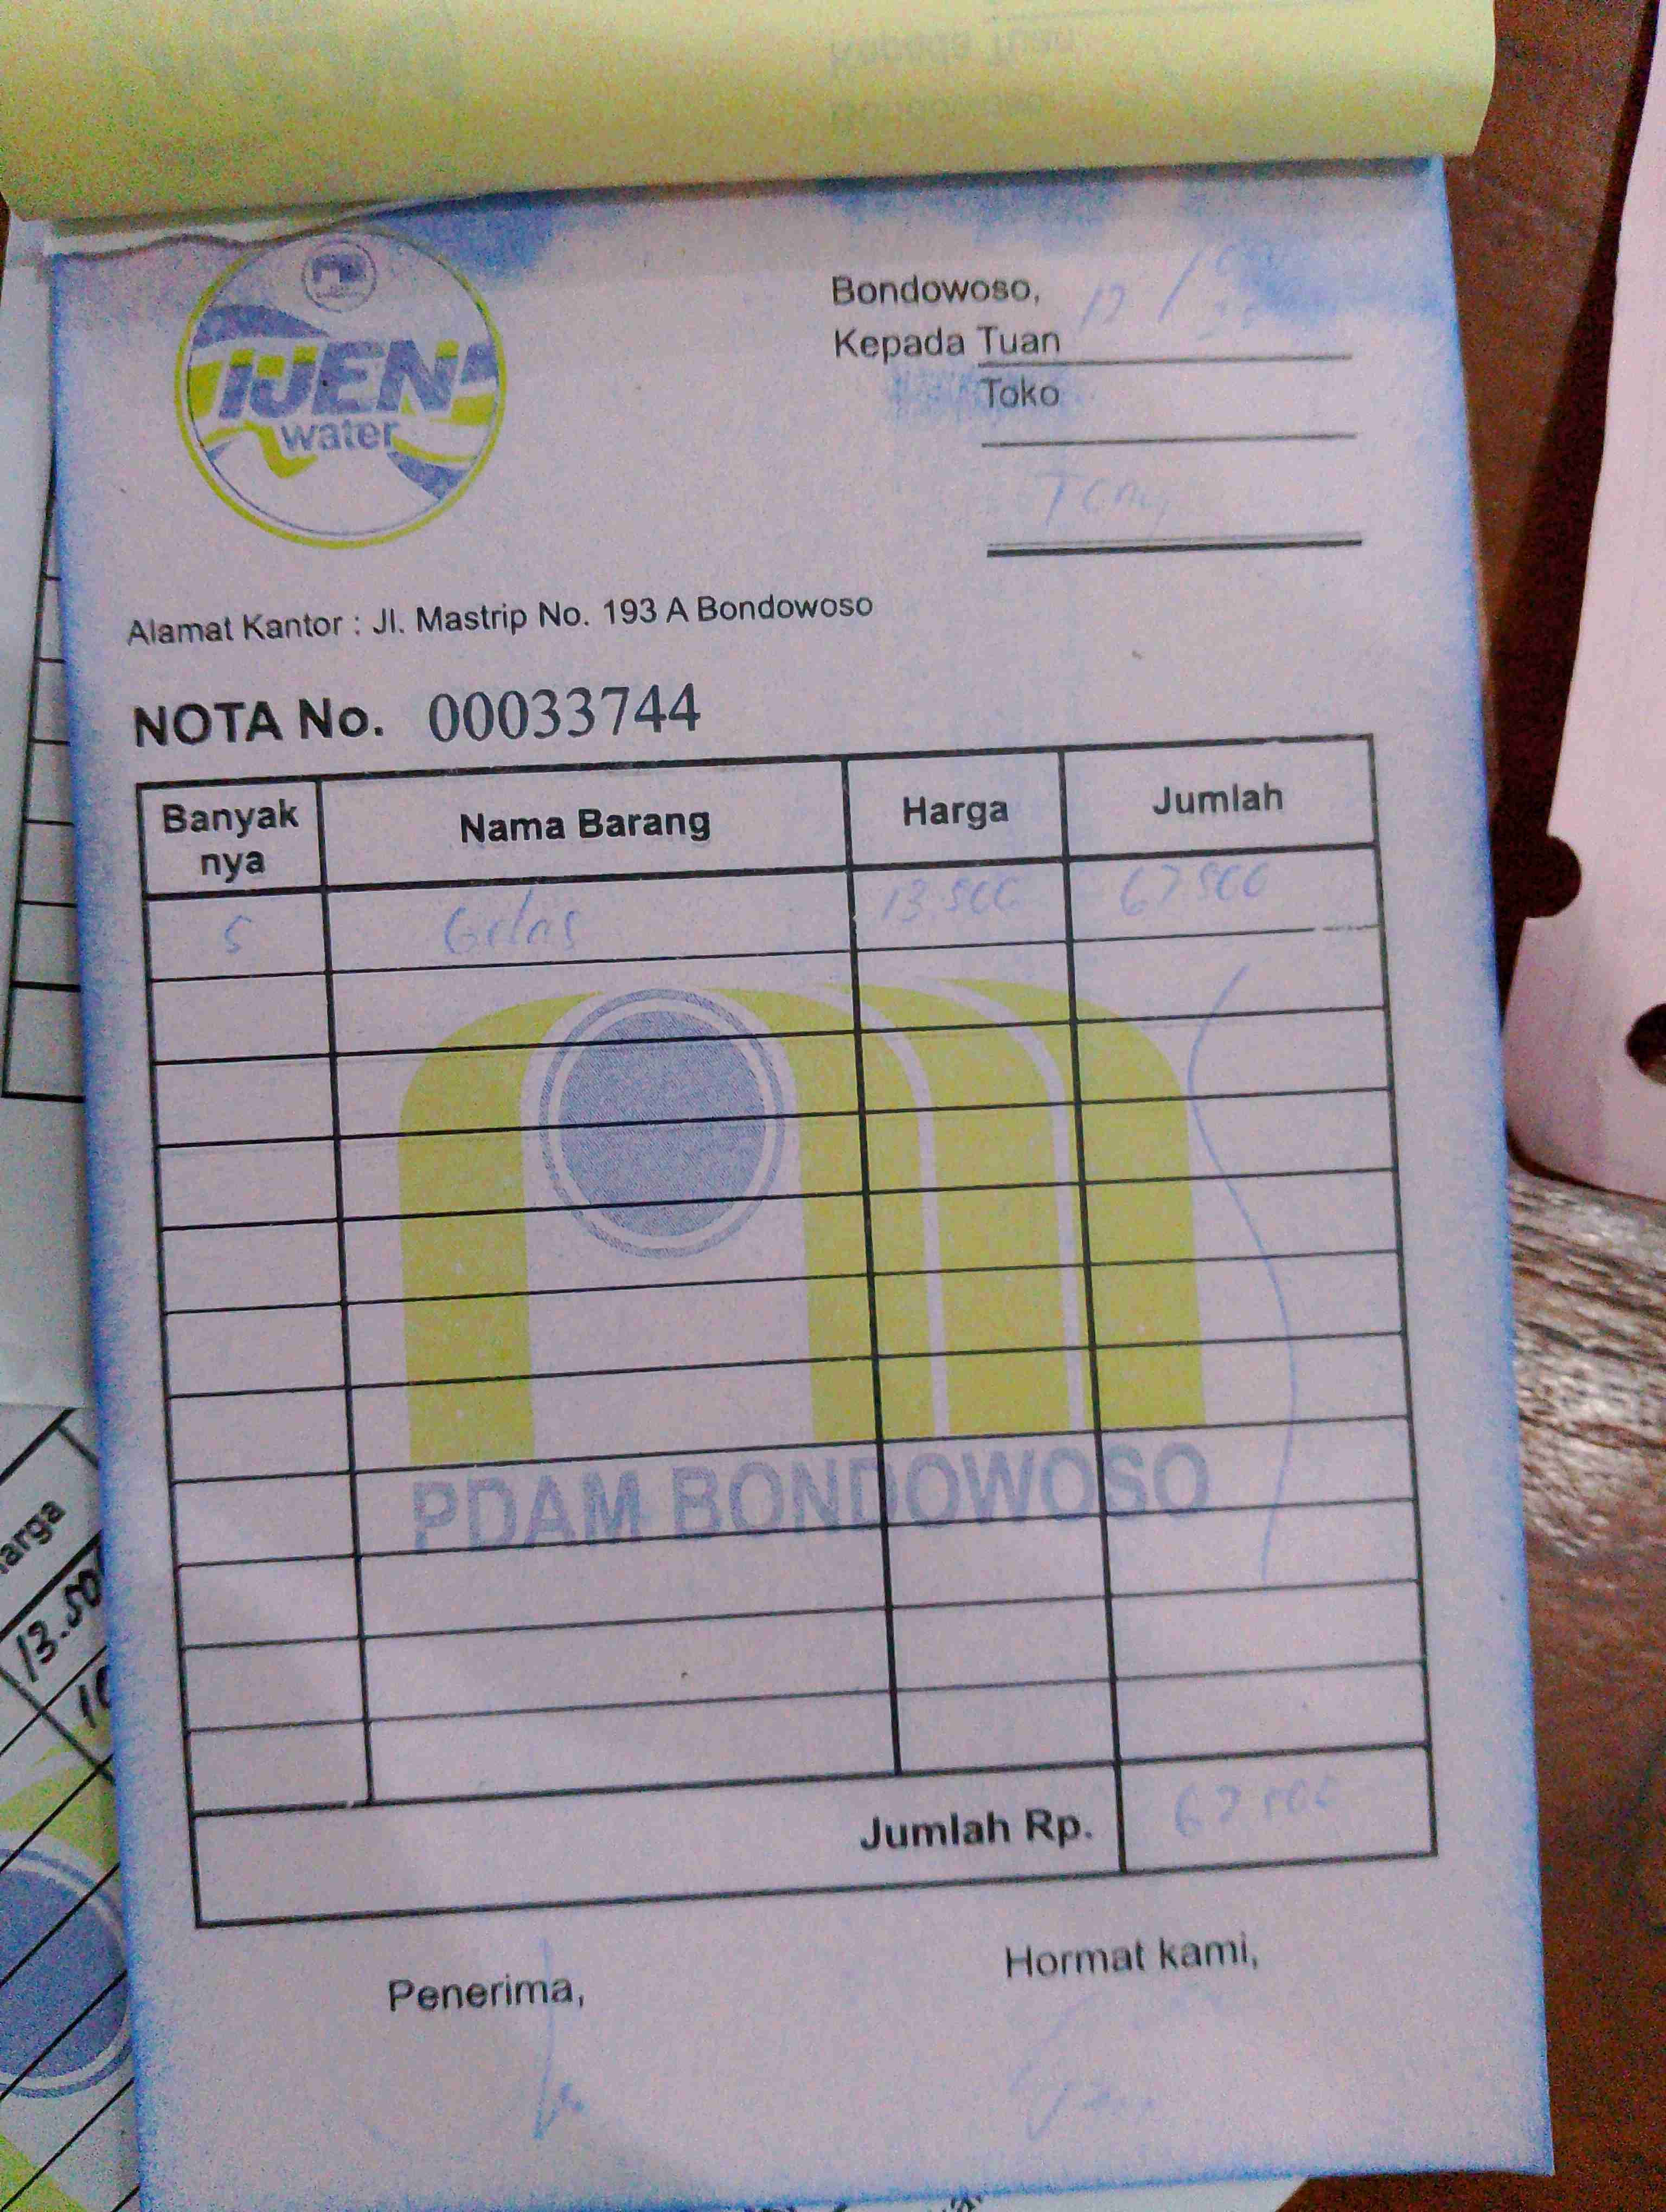 IJEN
water
Bondowoso,
Kepada Tuan
Toko
Tony
Alamat Kantor : Jl. Mastrip No. 193 A Bondowoso
NOTA No. 00033744
Banyak nya Nama Barang Harga Jumlah
5 Gelas 13.500 67.500
PDAM BONDOWOSO
Jumlah Rp. 67.500
Penerima,
Hormat kami,
arga
13.500